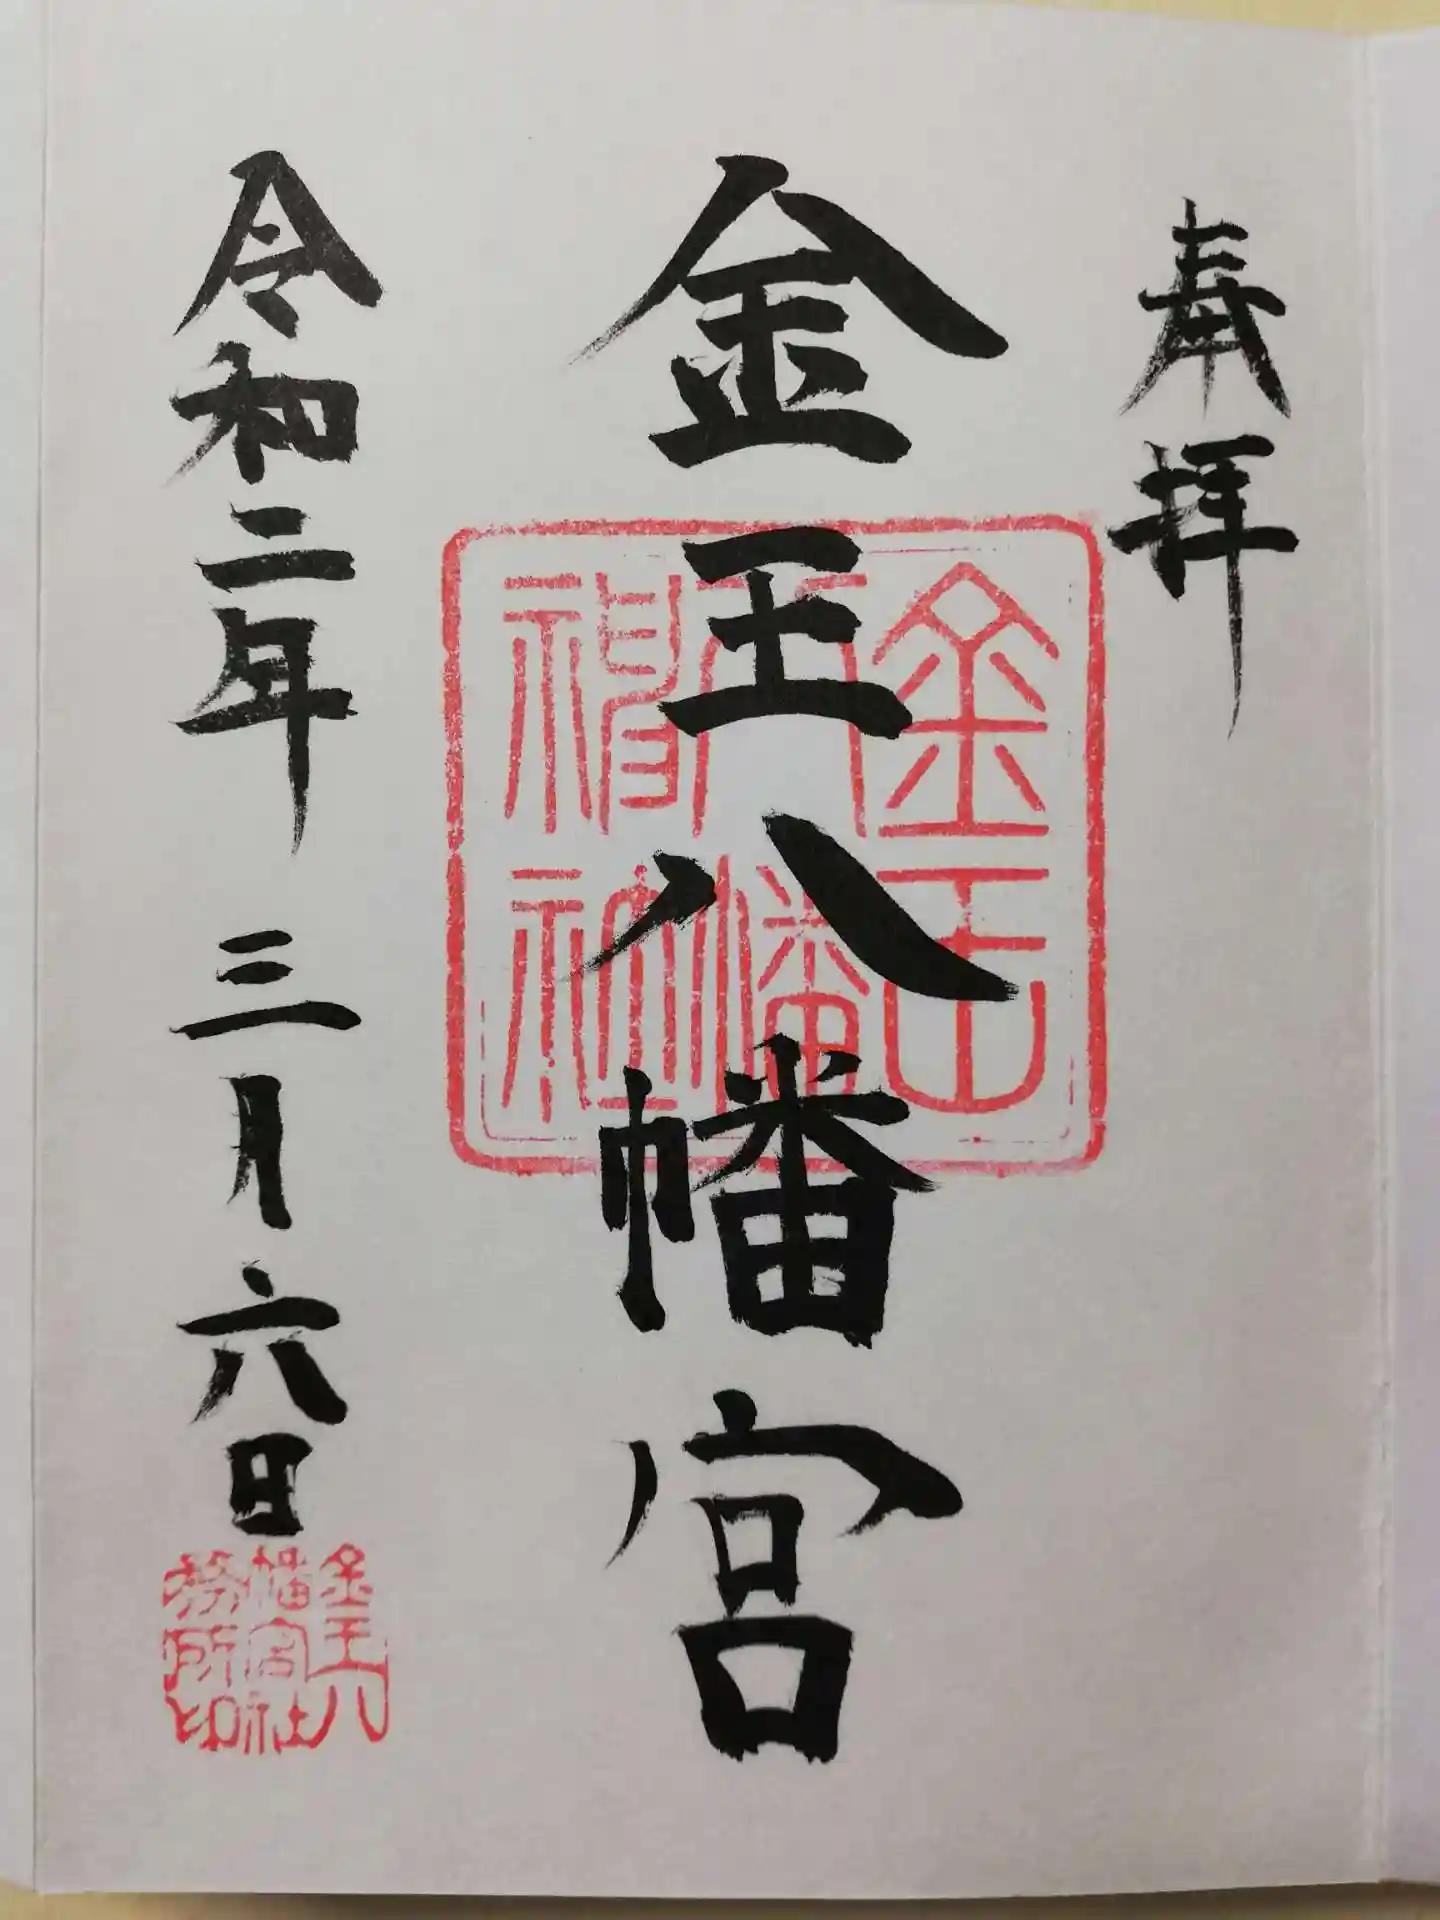 奉拝
金王八幡宮
金王
八幡
神社
令和二年 三月六日
金王八
幡宮社
務所印